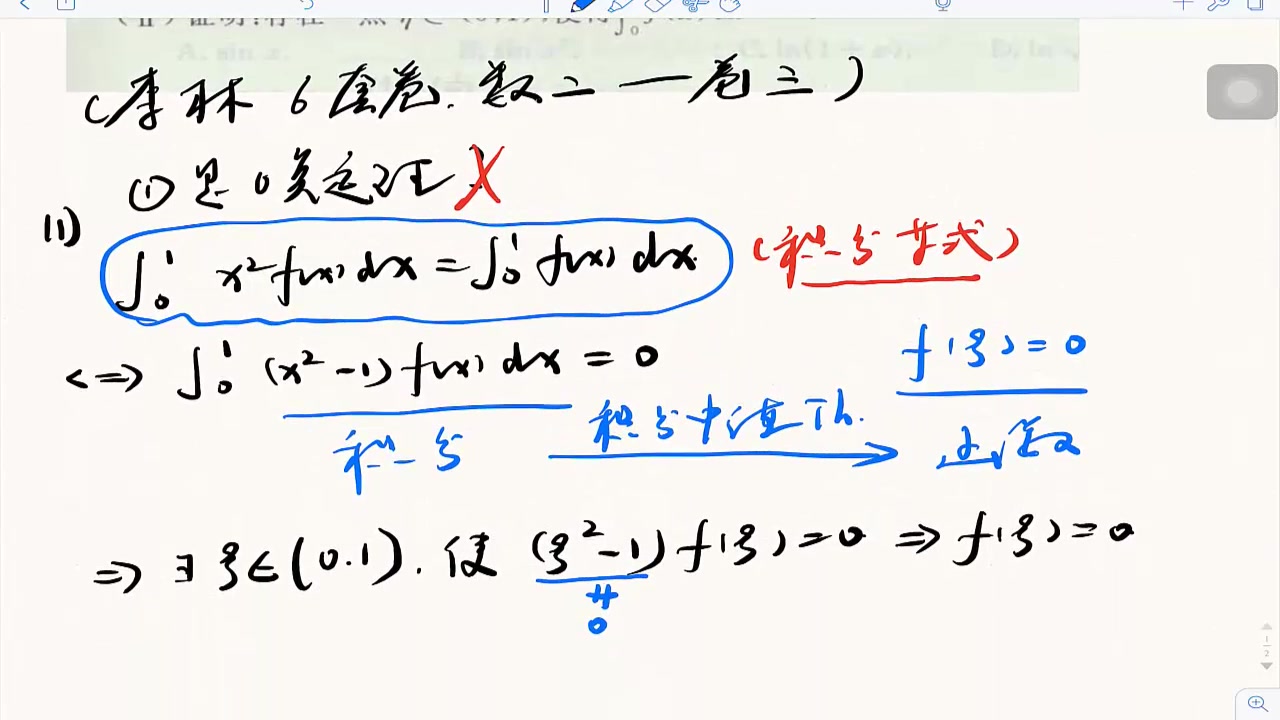 (II) 证明:存在一点 η ∈ (0,1),使得 ∫₀
A. sin x. C. ln(1 + x). D. ln
(李林 6套卷. 数二 — 卷三)
① 是 0点定理 X
(1) ∫₀¹ x² f(x) dx = ∫₀¹ f(x) dx. (积分等式)
<=> ∫₀¹ (x² -1) f(x) dx = 0
f(ξ) = 0
积分 积分中值Th.
=> ∃ ξ ∈ (0.1). 使 (ξ² -1) f(ξ) = 0 => f(ξ) = 0
≠
0